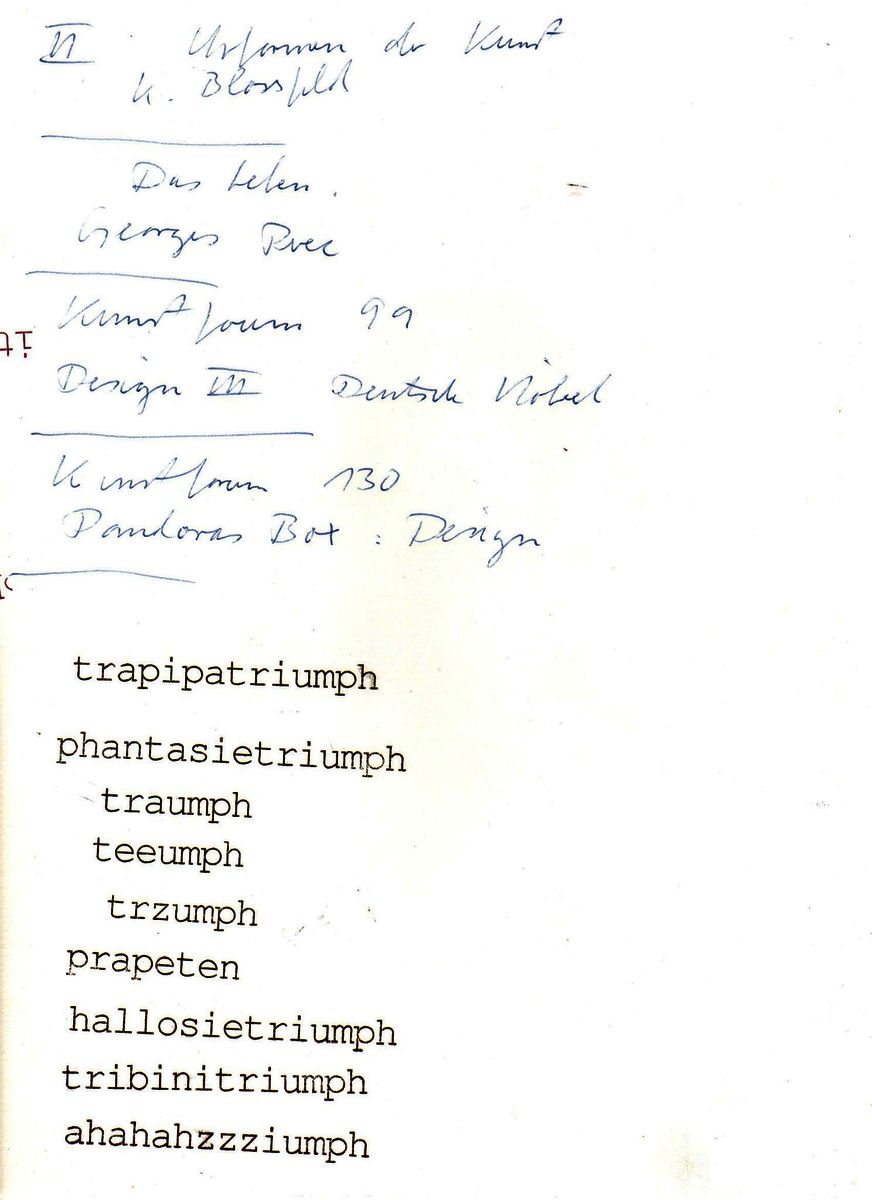 VI Urformen der Kunst
K. Blossfeld
Das Leben.
Georges Perec
Kunstforum 99
Design III Deutsche Möbel
Kunstforum 130
Pandoras Box : Design
trapipatriumph
phantasietriumph
traumph
teeumph
trzumph
prapeten
hallosietriumph
tribinitriumph
ahahahzzziumph